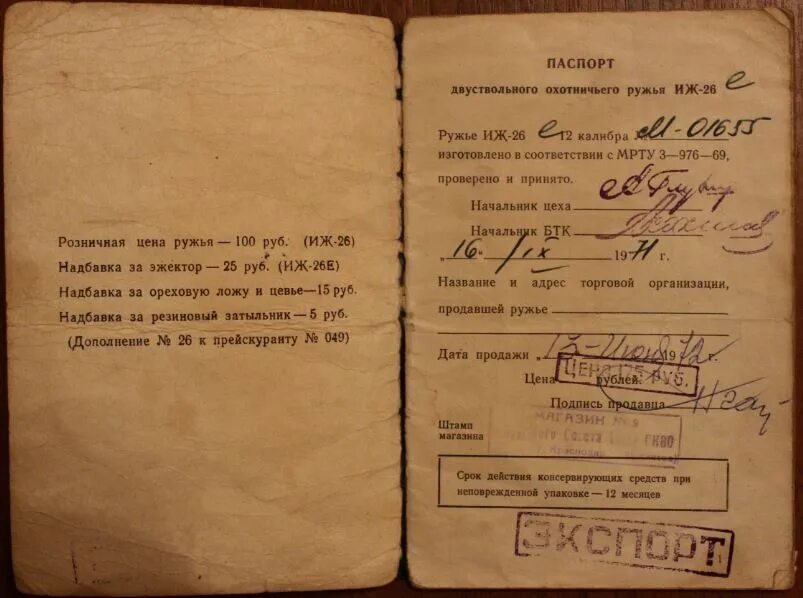 Розничная цена ружья — 100 руб. (ИЖ-26)
Надбавка за эжектор — 25 руб. (ИЖ-26Е)
Надбавка за ореховую ложу и цевье — 15 руб.
Надбавка за резиновый затыльник — 5 руб.
(Дополнение № 26 к прейскуранту № 049)
ПАСПОРТ
двуствольного охотничьего ружья ИЖ-26 е
Ружье ИЖ-26 е 12 калибра № М-01655
изготовлено в соответствии с МРТУ 3—976—69,
проверено и принято.
Начальник цеха
Начальник БТК
„16" IX 1971 г.
Название и адрес торговой организации,
продавшей ружье
Дата продажи „ 1972 г.
Цена рублей.
ЦЕНА 125 РУБ.
Подпись продавца
Штамп
магазина
МАГАЗИН № 9
Совета ПКВО
Срок действия консервирующих средств при
неповрежденной упаковке — 12 месяцев
ЭКСПОРТ